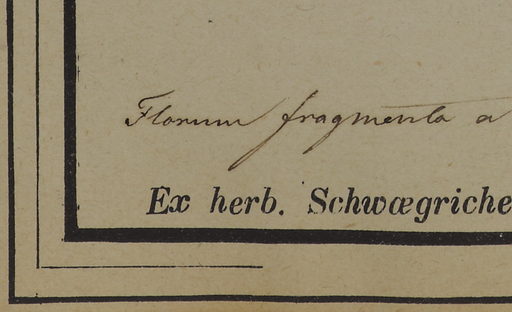 Florum fragmenta a
Ex herb. Schwægriche